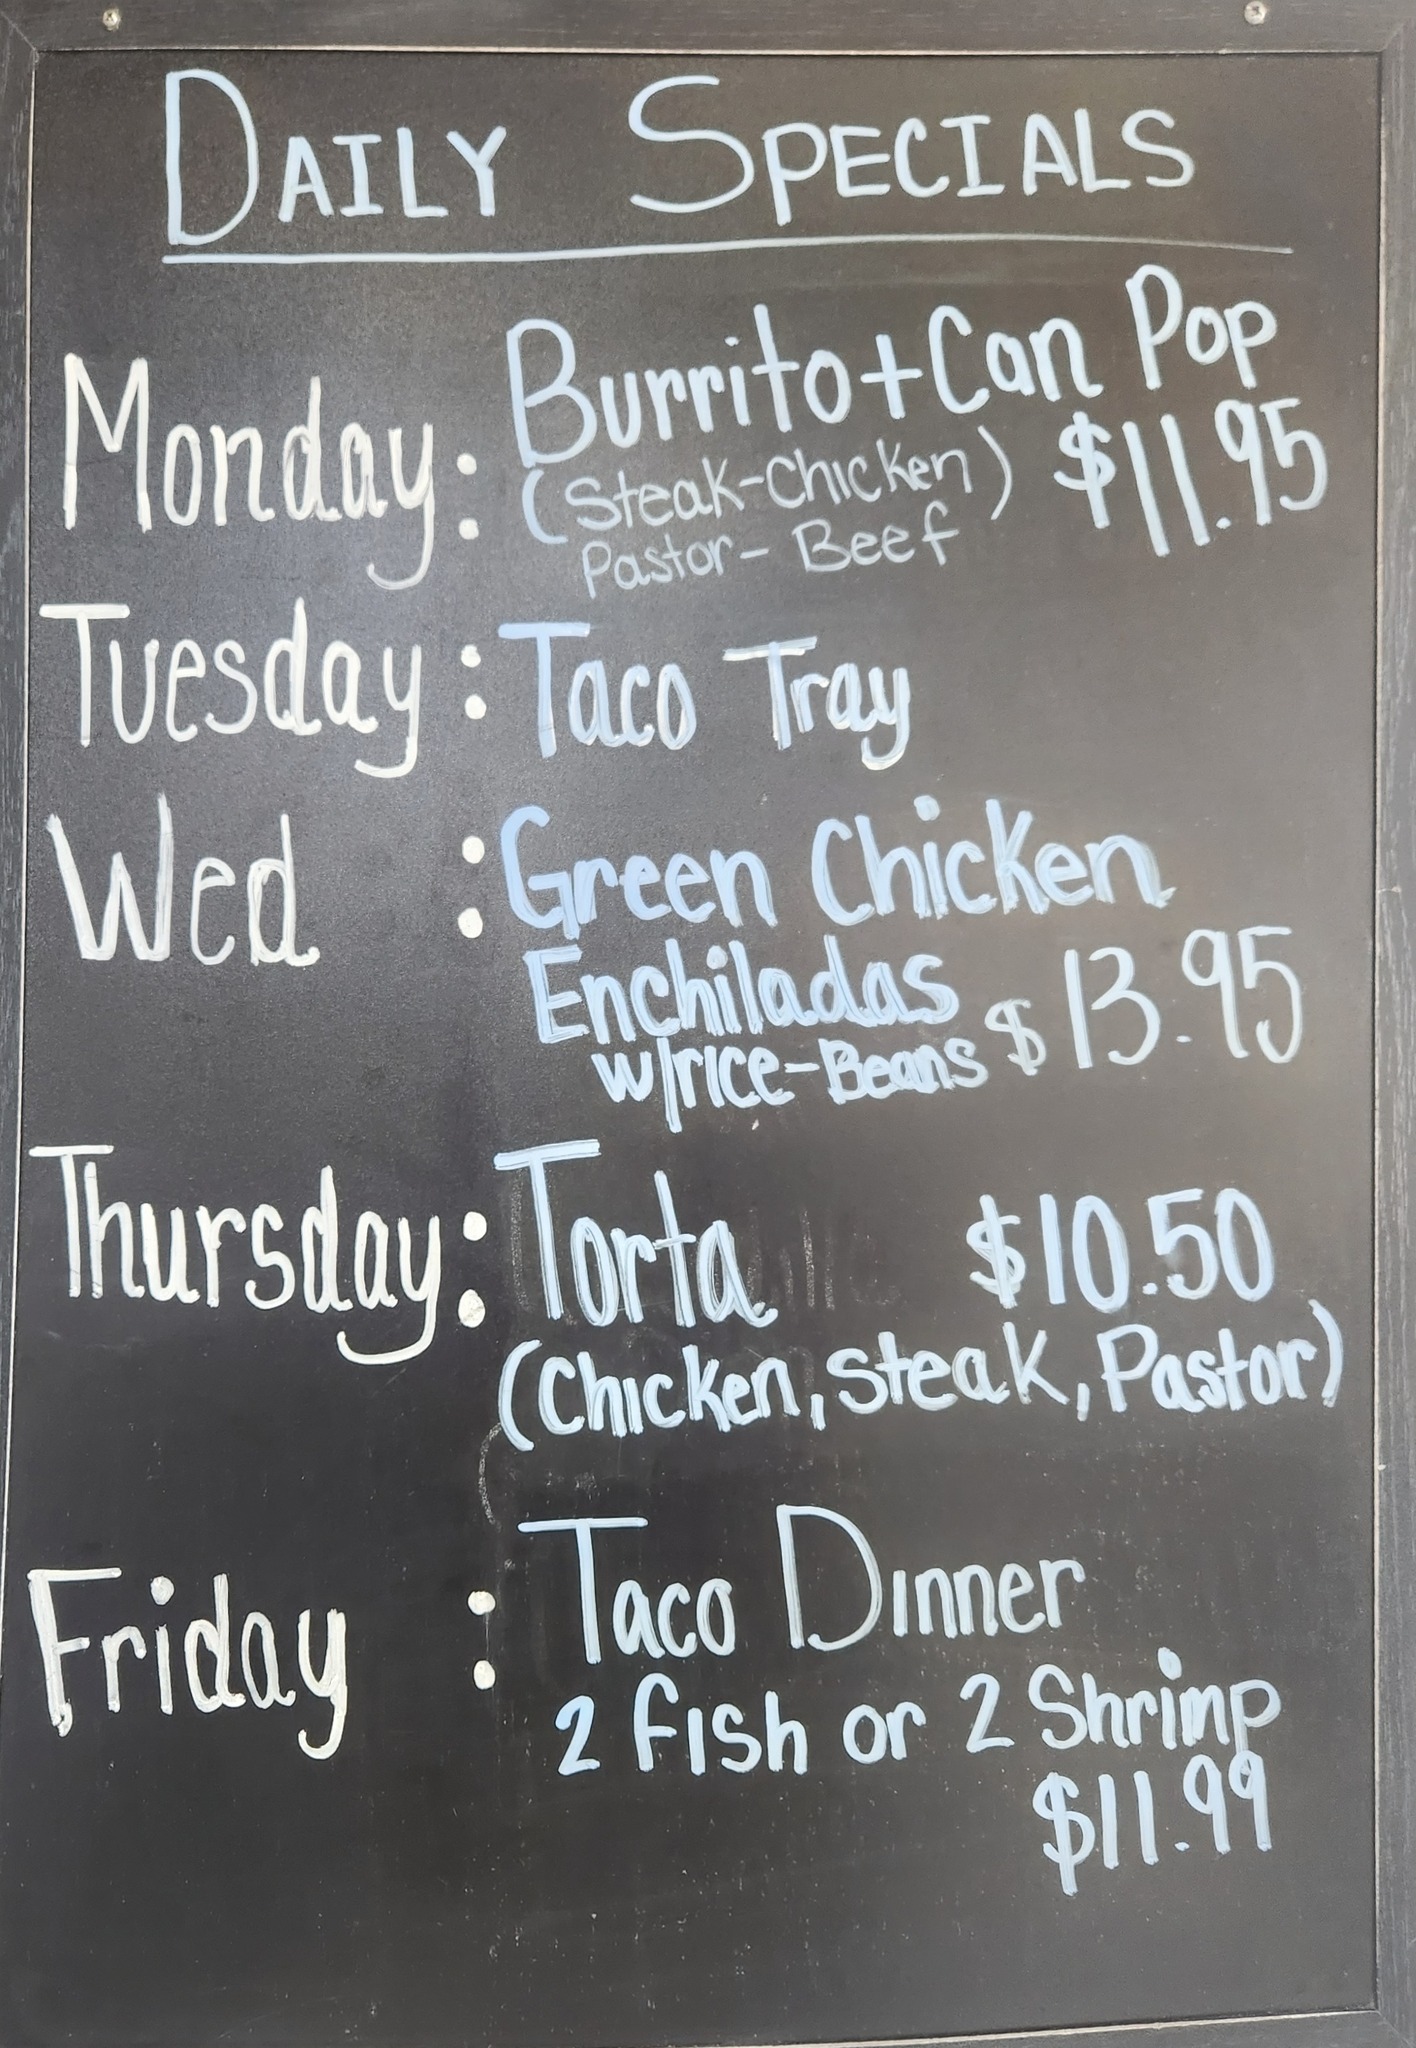 DAILY SPECIALS
Monday: Burrito + Can Pop
(Steak-Chicken) $11.95
Pastor- Beef
Tuesday: Taco Tray
Wed : Green Chicken
Enchiladas
w/rice-Beans $13.95
Thursday: Torta $10.50
(Chicken, Steak, Pastor)
Friday : Taco Dinner
2 Fish or 2 Shrimp
$11.99